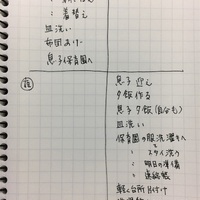 : 着替え
皿洗い
布団あげ
息子保育園へ
夜
息子 迎え
夕飯 作る
息子 夕飯(自分も)
皿洗い
保育園の服洗濯へ
: スタイ洗う
: 明日の準備
: 連絡帳
軽く台所片付け